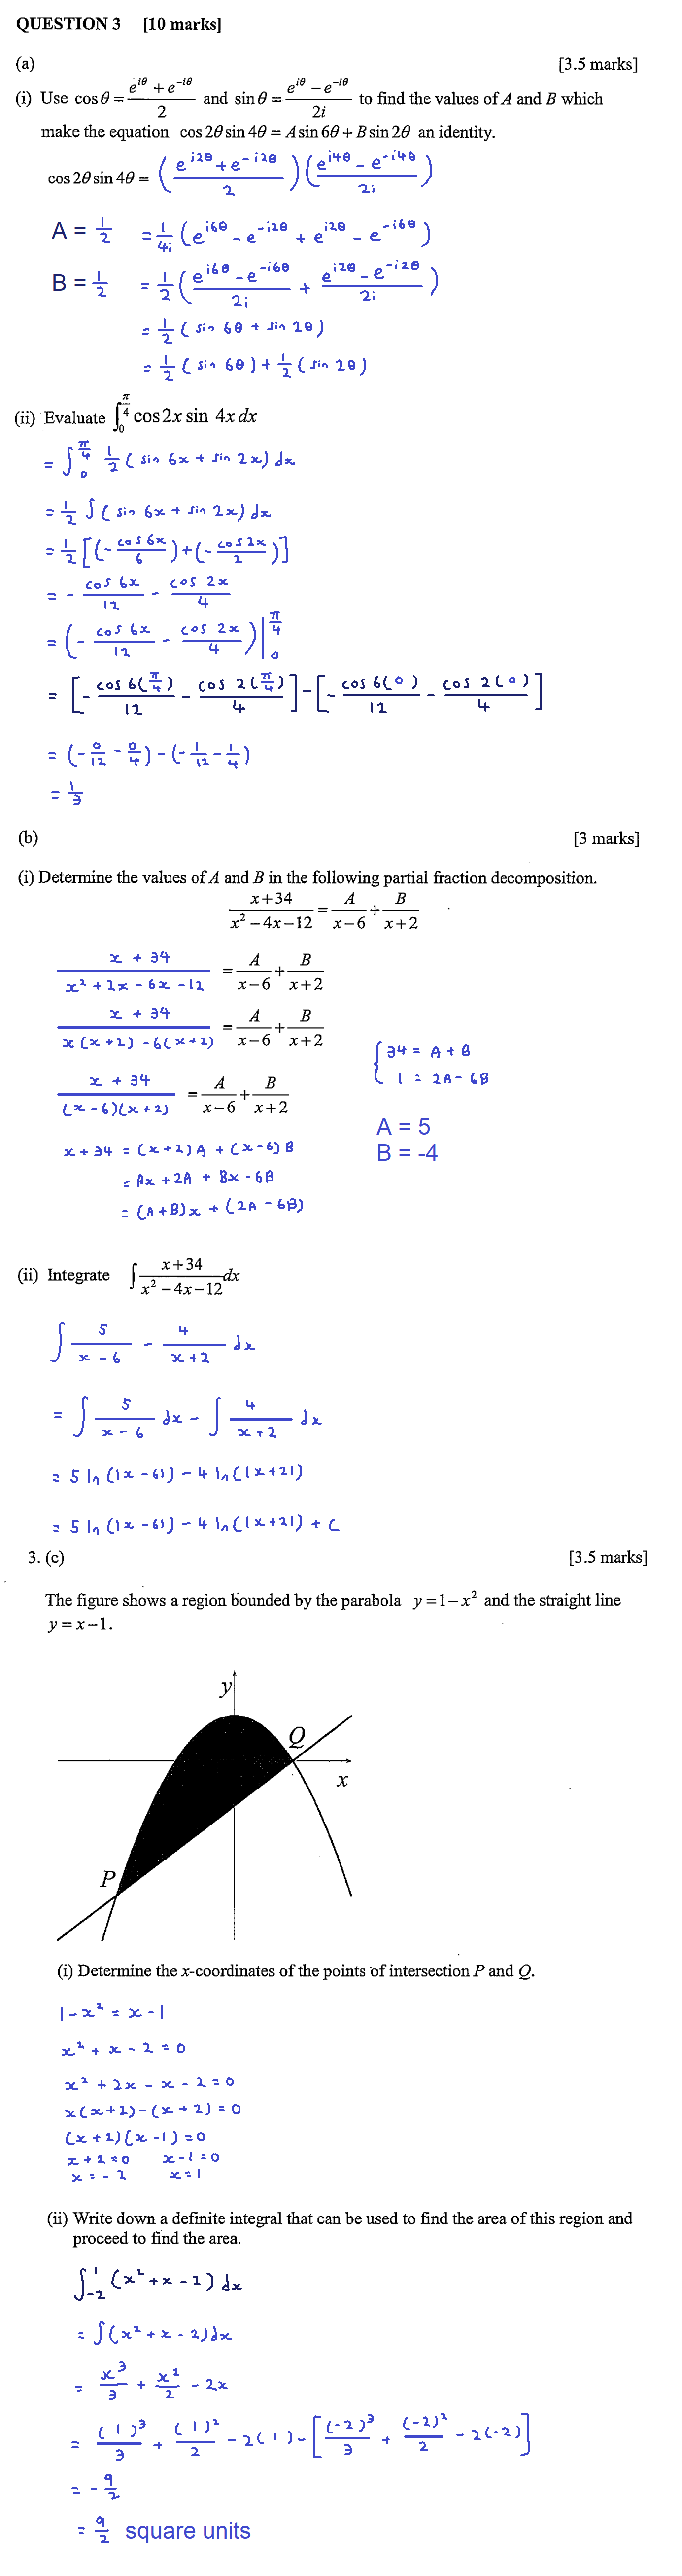 QUESTION 3 [10 marks]
(a) [3.5 marks]
(i) Use cos θ = (e^{iθ} + e^{-iθ})/2 and sin θ = (e^{iθ} − e^{-iθ})/2i to find the values of A and B which
make the equation cos 2θ sin 4θ = A sin 6θ + B sin 2θ an identity.
cos 2θ sin 4θ = ((e^{i2θ} + e^{-i2θ})/2)((e^{i4θ} − e^{-i4θ})/2i)
A = 1/2 = 1/4i (e^{i6θ} − e^{-i2θ} + e^{i2θ} − e^{-i6θ})
B = 1/2 = 1/2 ((e^{i6θ} − e^{-i6θ})/2i + (e^{i2θ} − e^{-i2θ})/2i)
= 1/2 (sin 6θ + sin 2θ)
= 1/2 (sin 6θ) + 1/2 (sin 2θ)
(ii) Evaluate ∫_0^{π/4} cos 2x sin 4x dx
= ∫_0^{π/4} 1/2 (sin 6x + sin 2x) dx
= 1/2 ∫ (sin 6x + sin 2x) dx
= 1/2 [(− cos 6x/6) + (− cos 2x/2)]
= − cos 6x/12 − cos 2x/4
= (− cos 6x/12 − cos 2x/4)|_0^{π/4}
= [− cos 6(π/4)/12 − cos 2(π/4)/4] − [− cos 6(0)/12 − cos 2(0)/4]
= (− 0/12 − 0/4) − (− 1/12 − 1/4)
= 1/3
(b) [3 marks]
(i) Determine the values of A and B in the following partial fraction decomposition.
(x+34)/(x² − 4x − 12) = A/(x−6) + B/(x+2)
(x + 34)/(x² + 2x − 6x − 12) = A/(x−6) + B/(x+2)
(x + 34)/(x(x+2) − 6(x+2)) = A/(x−6) + B/(x+2)
(x + 34)/((x−6)(x+2)) = A/(x−6) + B/(x+2)
x + 34 = (x+2)A + (x−6)B
= Ax + 2A + Bx − 6B
= (A+B)x + (2A − 6B)
{ 34 = A + B
1 = 2A − 6B
A = 5
B = -4
(ii) Integrate ∫ (x+34)/(x² − 4x − 12) dx
∫ 5/(x − 6) − 4/(x + 2) dx
= ∫ 5/(x − 6) dx − ∫ 4/(x + 2) dx
= 5 ln(|x − 6|) − 4 ln(|x + 2|)
= 5 ln(|x − 6|) − 4 ln(|x + 2|) + C
3. (c) [3.5 marks]
The figure shows a region bounded by the parabola y = 1 − x² and the straight line
y = x − 1.
y
Q
x
P
(i) Determine the x-coordinates of the points of intersection P and Q.
1 − x² = x − 1
x² + x − 2 = 0
x² + 2x − x − 2 = 0
x(x+2) − (x+2) = 0
(x+2)(x−1) = 0
x + 2 = 0 x − 1 = 0
x = − 2 x = 1
(ii) Write down a definite integral that can be used to find the area of this region and
proceed to find the area.
∫_{-2}^{1} (x² + x − 2) dx
= ∫(x² + x − 2)dx
= x³/3 + x²/2 − 2x
= (1)³/3 + (1)²/2 − 2(1) − [(−2)³/3 + (−2)²/2 − 2(−2)]
= − 9/2
= 9/2 square units